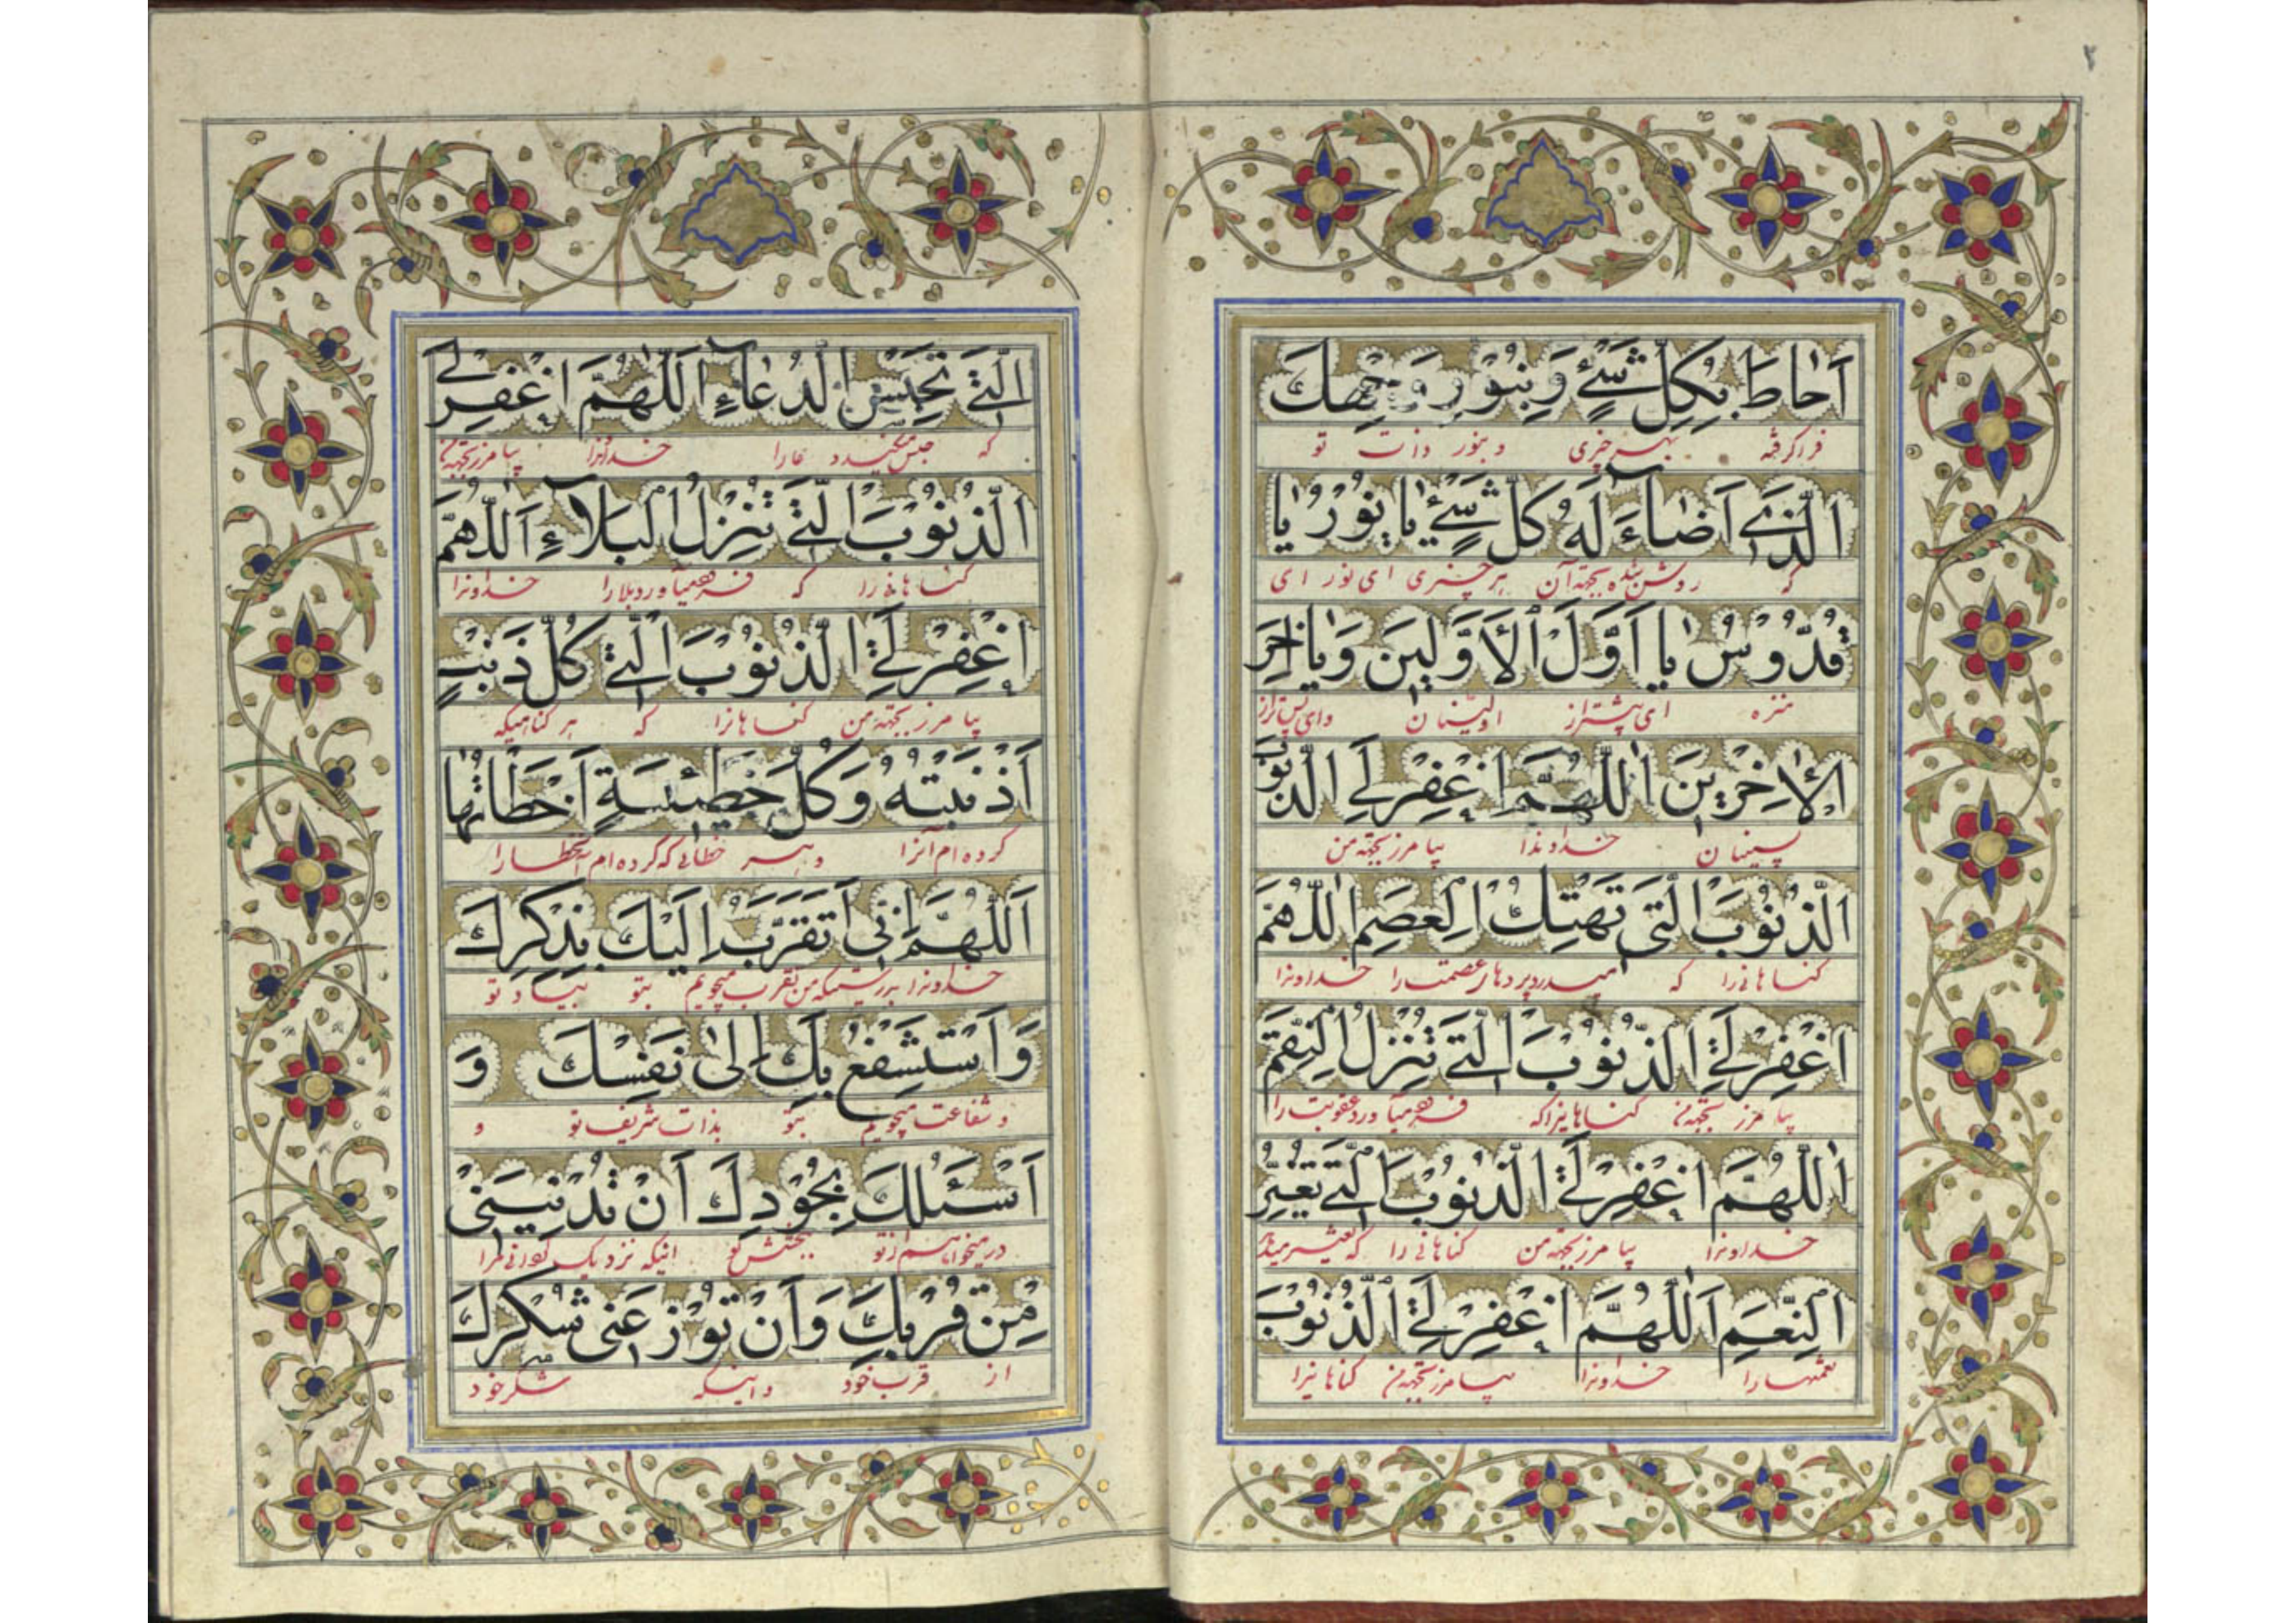 ٢
اَحٰاطَ بِكُلِّ شَیْءٍ وَ بِنُوْرِ وَجْهِكَ
فراگرفته بهر چیزی و بنور ذات تو
الَّذی اَضٰآءَ لَهُ كُلُّ شَیْءٍ یٰا نُوْرُ یٰا
که روشن شده بجهة آن هر چیزی ای نور ای
قُدُّوْسُ یٰا اَوَّلَ الْاَوَّلینَ وَ یٰا اٰخِرَ
منزه ای پیشتر از اولینان وای پس‌تر از
الْاٰخِرْینَ اَللّٰهُمَّ اغْفِرْ لِیَ الذُّنُوْبَ
پسینیان خداوندا بیامرز بجهة من
الذُّنُوْبَ الَّتی تَهْتِكُ الْعِصَمَ اَللّٰهُمَّ
گناهانی را که میدرد پردهای عصمت را خداوندا
اغْفِرْ لِیَ الذُّنُوْبَ الَّتی تُنْزِلُ النِّقَمَ
بیامرز بجهة من گناهانیرا که فرو میآورد عقوبت را
اَللّٰهُمَّ اغْفِرْ لِیَ الذُّنُوْبَ الَّتی تُغَیِّرُ
خداوندا بیامرز بجهة من گناهانی را که تغییر میدهد
النِّعَمَ اَللّٰهُمَّ اغْفِرْ لِیَ الذُّنُوْبَ
نعمتها را خداوندا بیامرز بجهة من گناهانیرا
الَّتی تَحْبِسُ الدُّعٰآءَ اَللّٰهُمَّ اغْفِرْ لِی
که حبس میکنند دعا را خداوندا بیامرز بجهة من
الذُّنُوْبَ الَّتی تُنْزِلُ الْبَلآءَ اَللّٰهُمَّ
گناهانی را که فرو میآورد بلا را خداوندا
اغْفِرْ لِی الذُّنُوْبَ الَّتی كُلَّ ذَنْبٍ
بیامرز بجهة من گناهانرا که هر گناهیکه
اَذْنَبْتُهُ وَ كُلَّ خَطٖیئَةٍ اَخْطَاْتُهٰا
کرده ام آنرا و هر خطائی که کرده ام آنخطا را
اَللّٰهُمَّ اِنّی اَتَقَرَّبُ اِلَیْكَ بِذِكْرِكَ
خداوندا بدرستیکه من تقرب میجویم بتو بیاد تو
وَ اَسْتَشْفِعُ بِكَ اِلٰی نَفْسِكَ وَ
و شفاعت میجویم بتو بذات شریف تو و
اَسْئَلُكَ بِجُوْدِكَ اَنْ تُدْنِیَنی
در میخواهم از تو ببخشش تو اینکه نزدیک گردانی مرا
مِنْ قُرْبِكَ وَ اَنْ تُوْزِعَنی شُكْرَكَ
از قرب خود و اینکه شکر خود